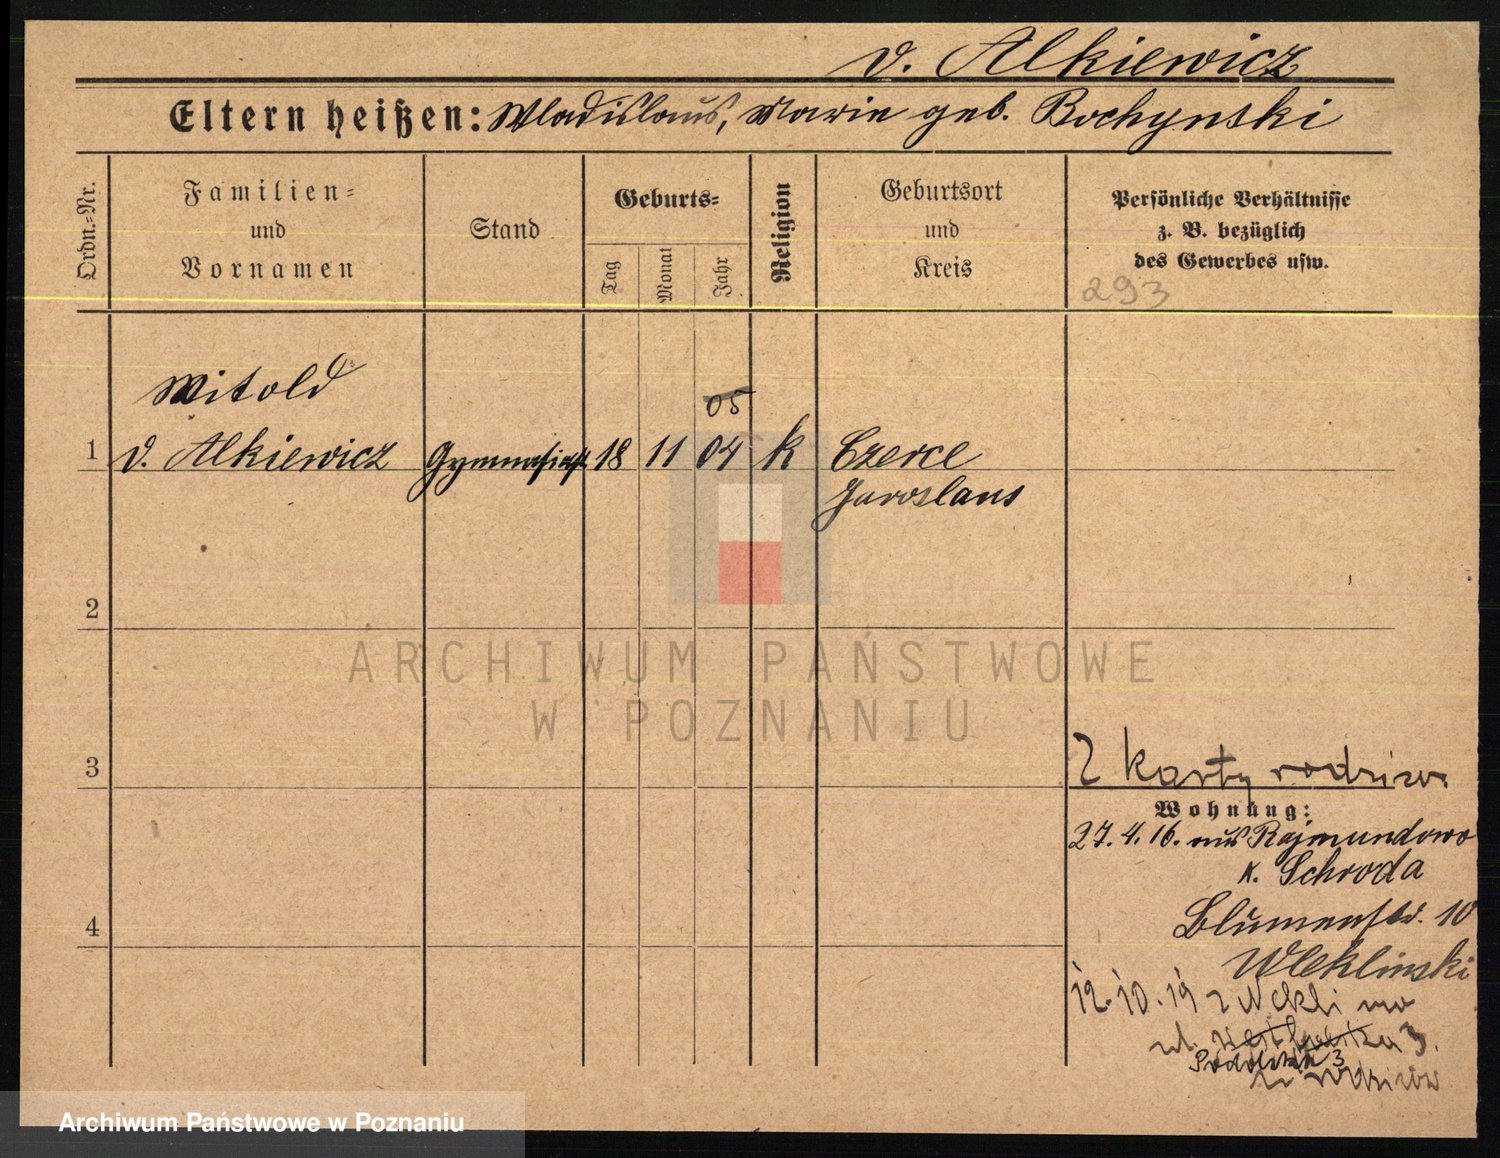 v. Alkiewicz
Eltern heißen: Wladislaus, Marie geb. Bochynski
Ordn.=Nr.
Familien=
und
Vornamen
Stand
Geburts=
Tag
Monat
Jahr
Religion
Geburtsort
und
Kreis
Persönliche Verhältnisse
z. B. bezüglich
des Gewerbes usw.
293
Witold
05
1 v. Alkiewicz Gymnasiast 18 11 04 k Czerce
Jaroslaus
2
ARCHIWUM PAŃSTWOWE
W POZNANIU
3
Z karty rodziców
Wohnung:
27.4.16. aus Rajmundowo
K. Schroda
4
Blumenstr. 10
Wleklinski
12.10.19 z
ul. 3.
Podolska 3
rodziców
Archiwum Państwowe w Poznaniu